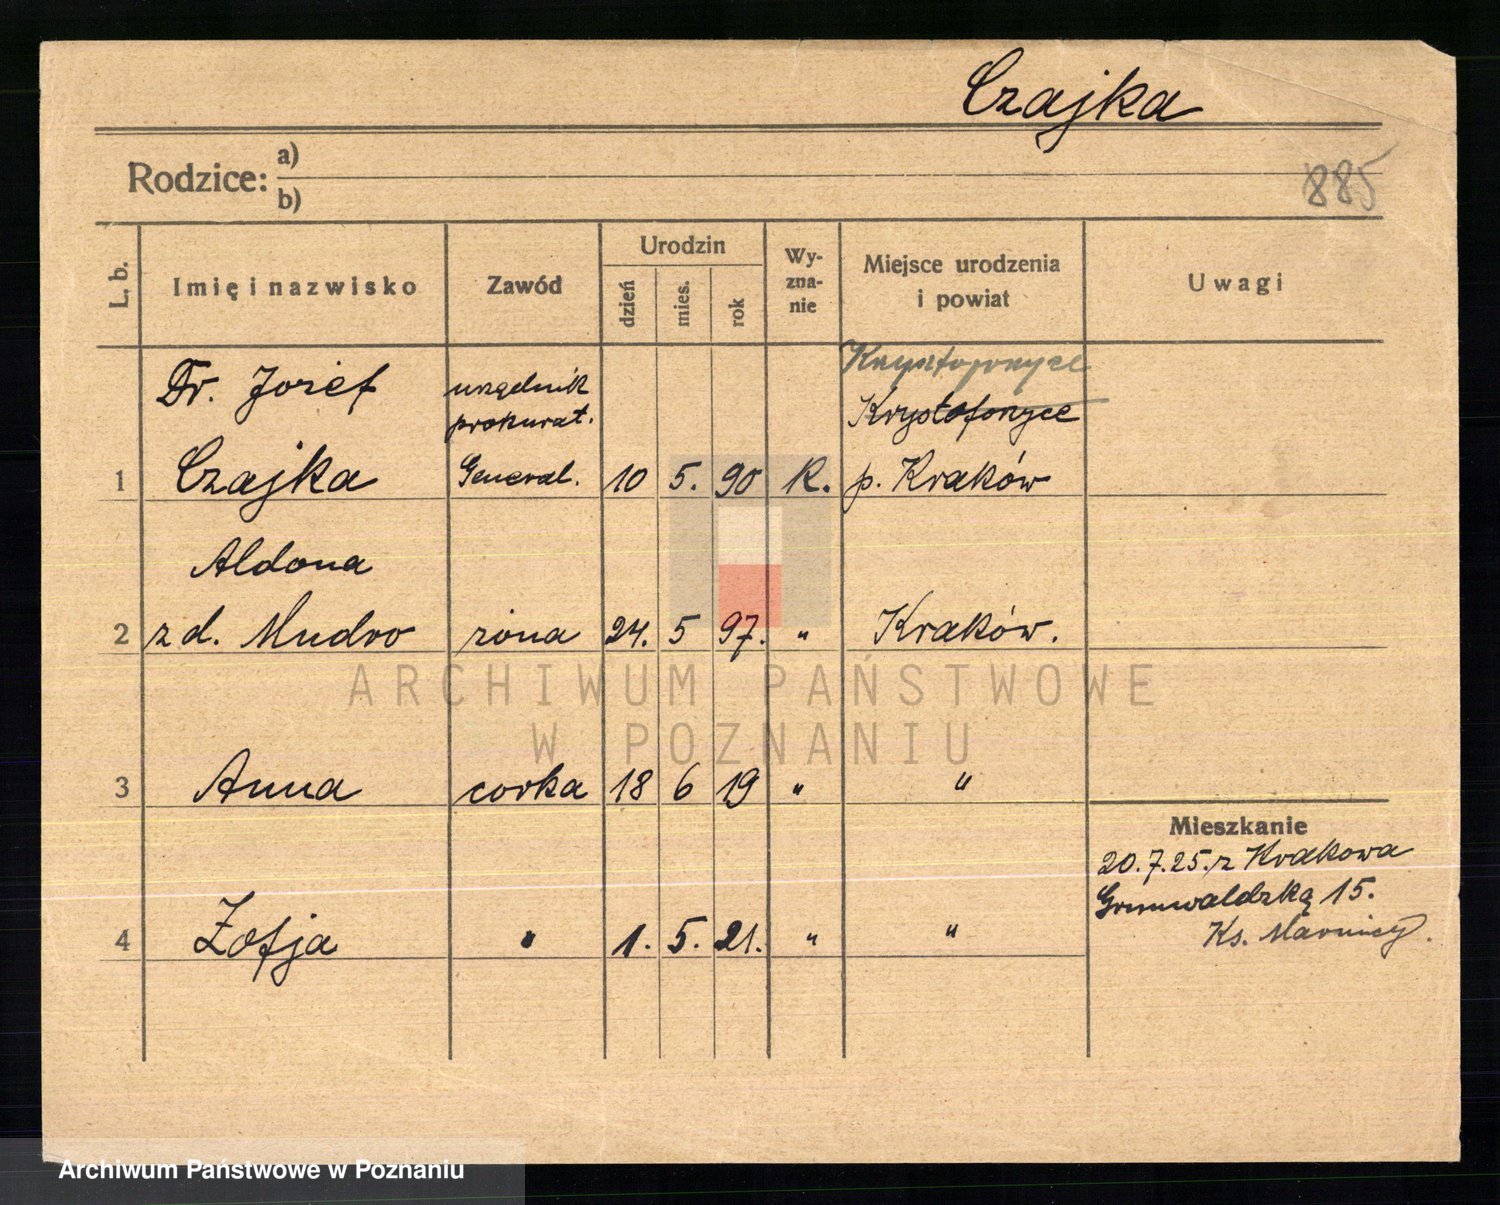 Czajka
Rodzice: a)
b)
885
L. b.
Imię i nazwisko
Zawód
Urodzin
dzień
mies.
rok
Wy-
zna-
nie
Miejsce urodzenia
i powiat
Uwagi
Krysztoforzyce
Dr. Jozef urzędnik Krystoforzyce
prokurat.
1 Czajka General. 10 5. 90 R. p. Kraków
Aldona
2 z d. Mudro żona 24. 5 97. " Kraków.
ARCHIWUM PAŃSTWOWE
W POZNANIU
3 Anna corka 18 6 19 " "
Mieszkanie
20.7.25. z Krakowa
Grunwaldzką 15.
4 Zofja " 1. 5. 21. " "
Ks.
Archiwum Państwowe w Poznaniu